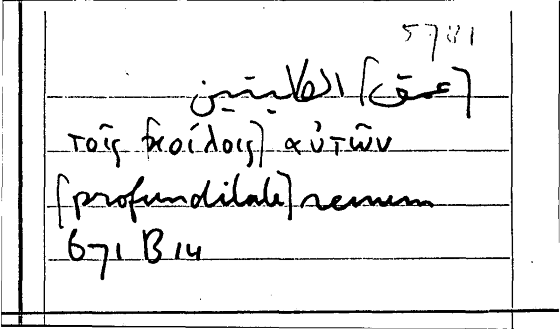 [عمق] الكليتين
τοῖς [κοίλοις] αὐτῶν
[profunditate] renum
671 B 14